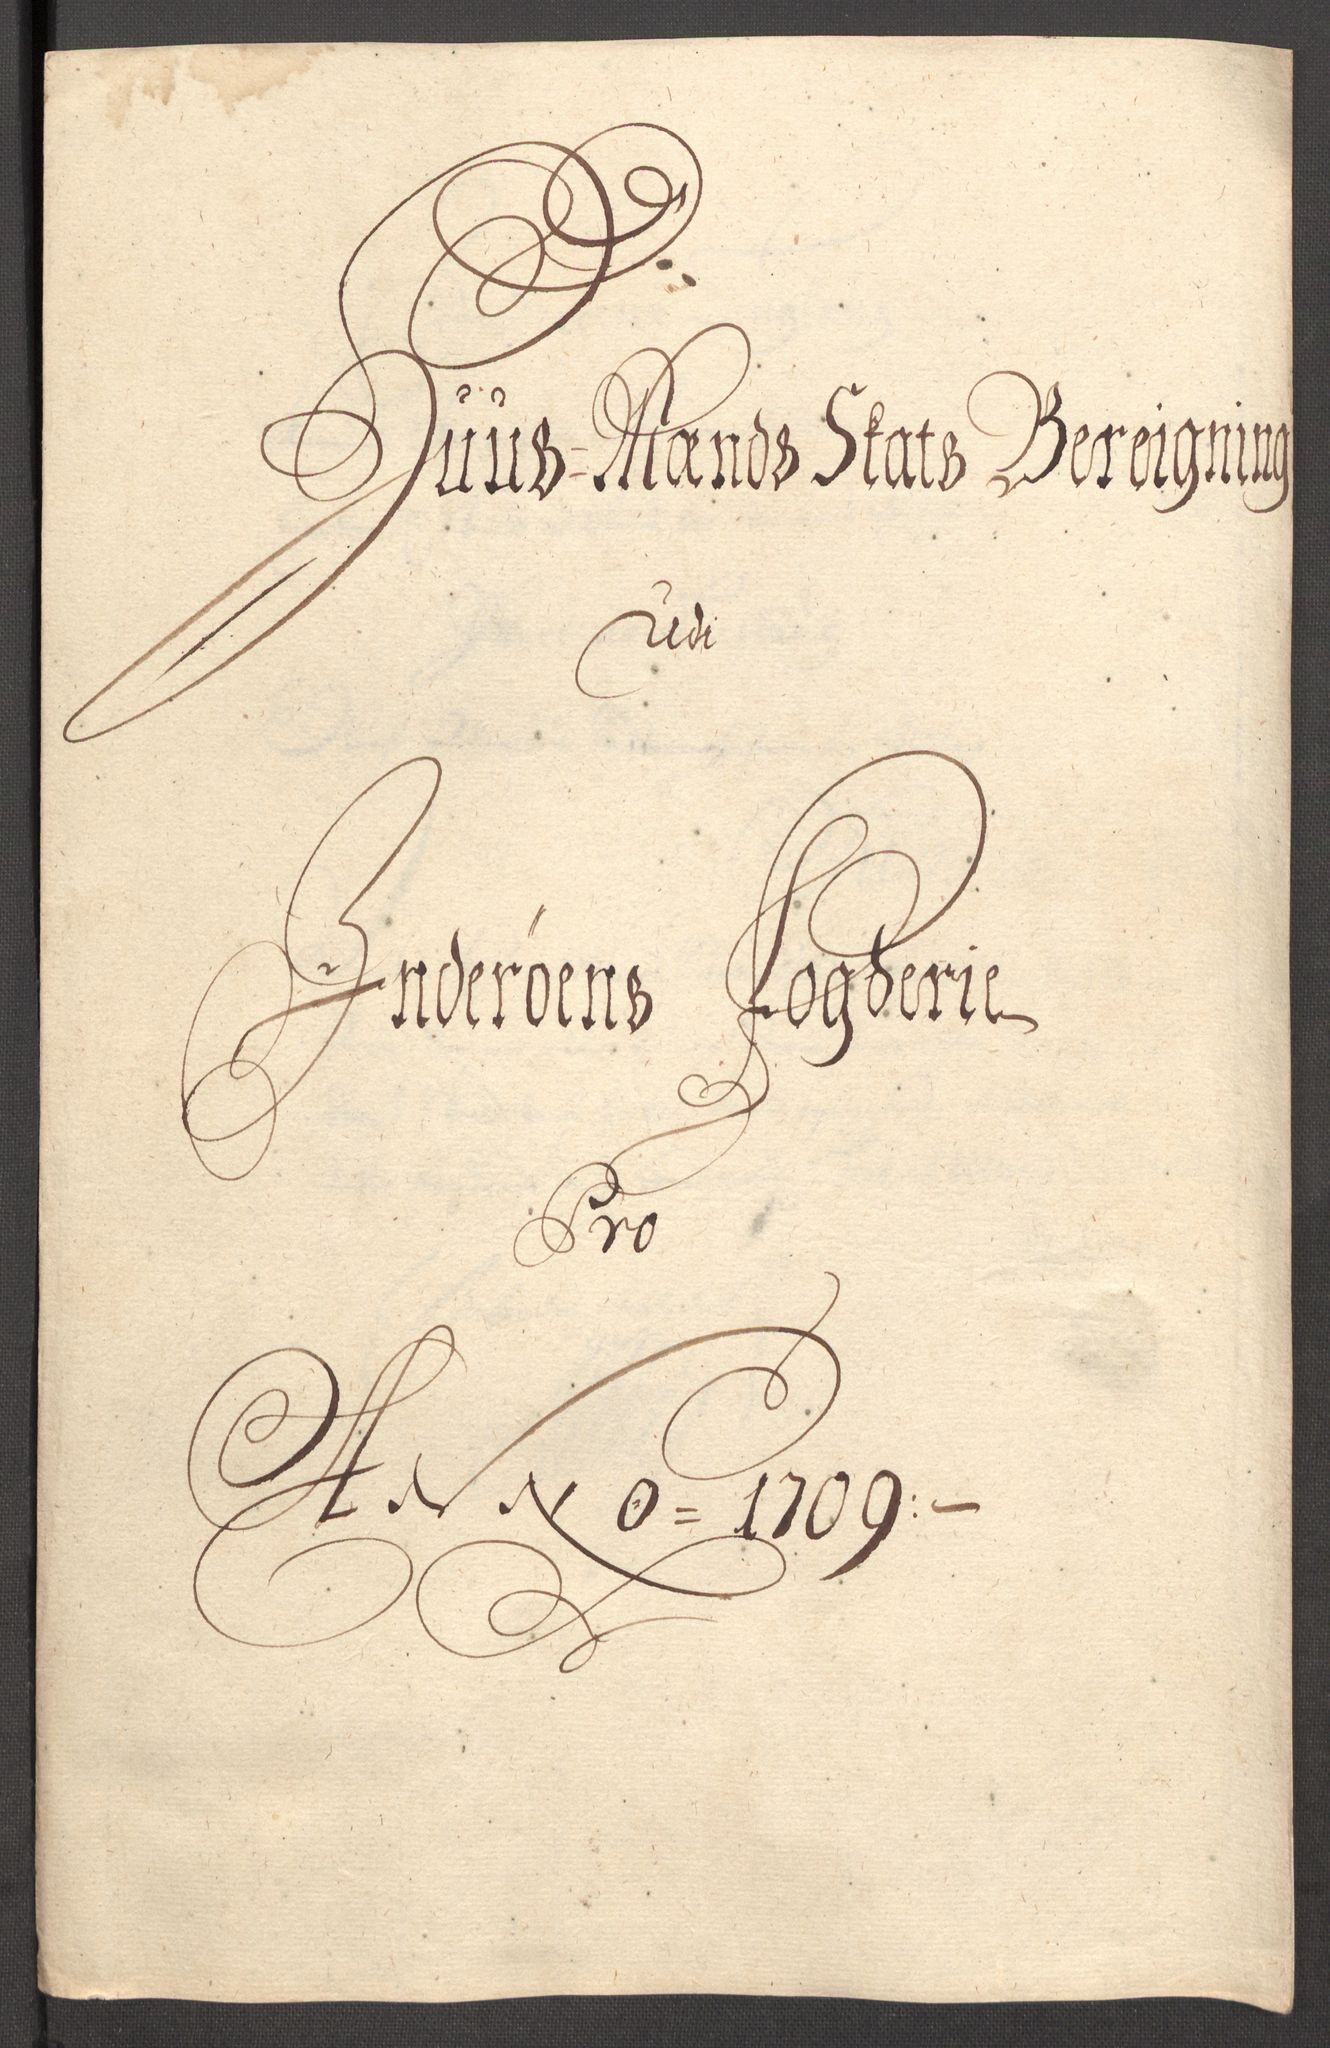 Huus-Mænds Skats Bereigning
udi
Inderöens Fogderie
Pro
ANNO = 1709:-